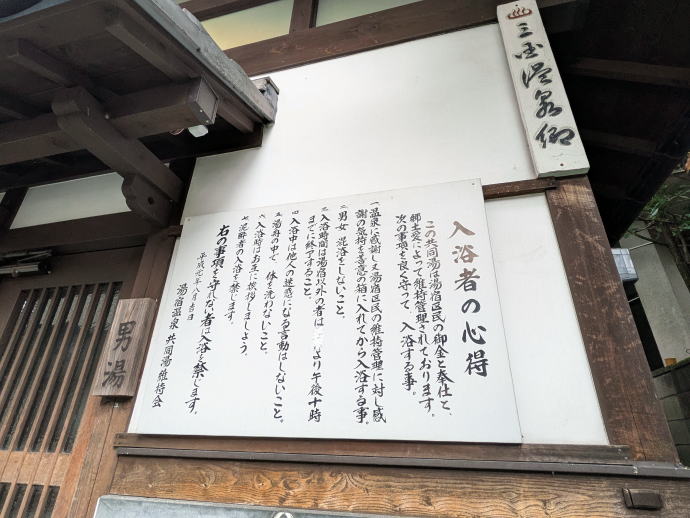 ♨三国温泉郷
入浴者の心得
この共同湯は湯宿区民の御金と奉仕と、
郷土愛によって維持管理されております。
次の事項を良く守って、入浴する事。
一 温泉に感謝し又湯宿区民の維持管理に対し感
謝の気持を善意の箱に入れてから入浴する事。
二 男女混浴をしないこと。
三 入浴時間は湯宿以外の者は より午後十時
までに終了すること。
四 入浴中は他人の迷惑になる言動はしないこと。
五 湯舟の中で、体を洗わないこと。
六 入浴時はお互に挨拶しましょう。
七 泥酔者の入浴を禁じます。
右の事項を守れない者は入浴を禁じます。
平成元年 月吉日
湯宿温泉 共同湯維持会
男湯